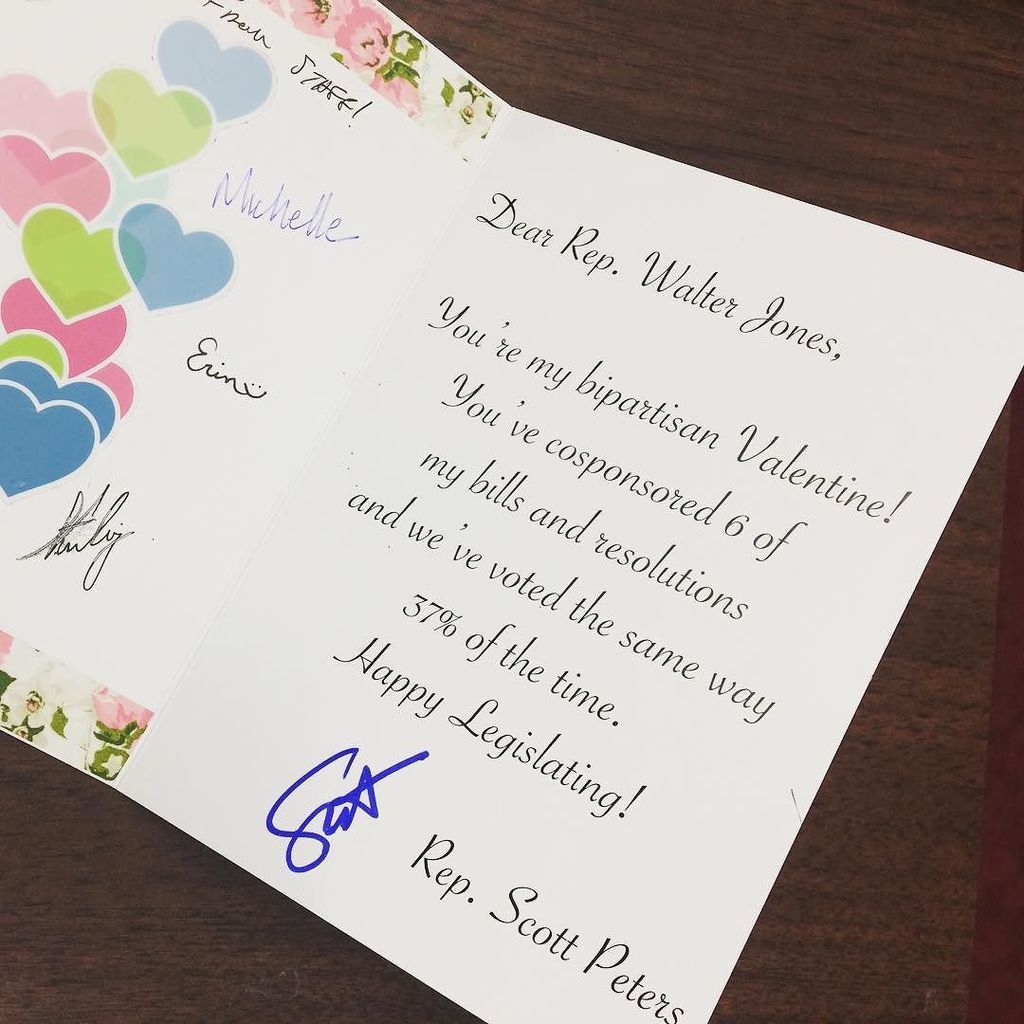 STAFF!
Michelle
Erin
Dear Rep. Walter Jones,
You're my bipartisan Valentine!
You've cosponsored 6 of
my bills and resolutions
and we've voted the same way
37% of the time.
Happy Legislating!
Scott
Rep. Scott Peters